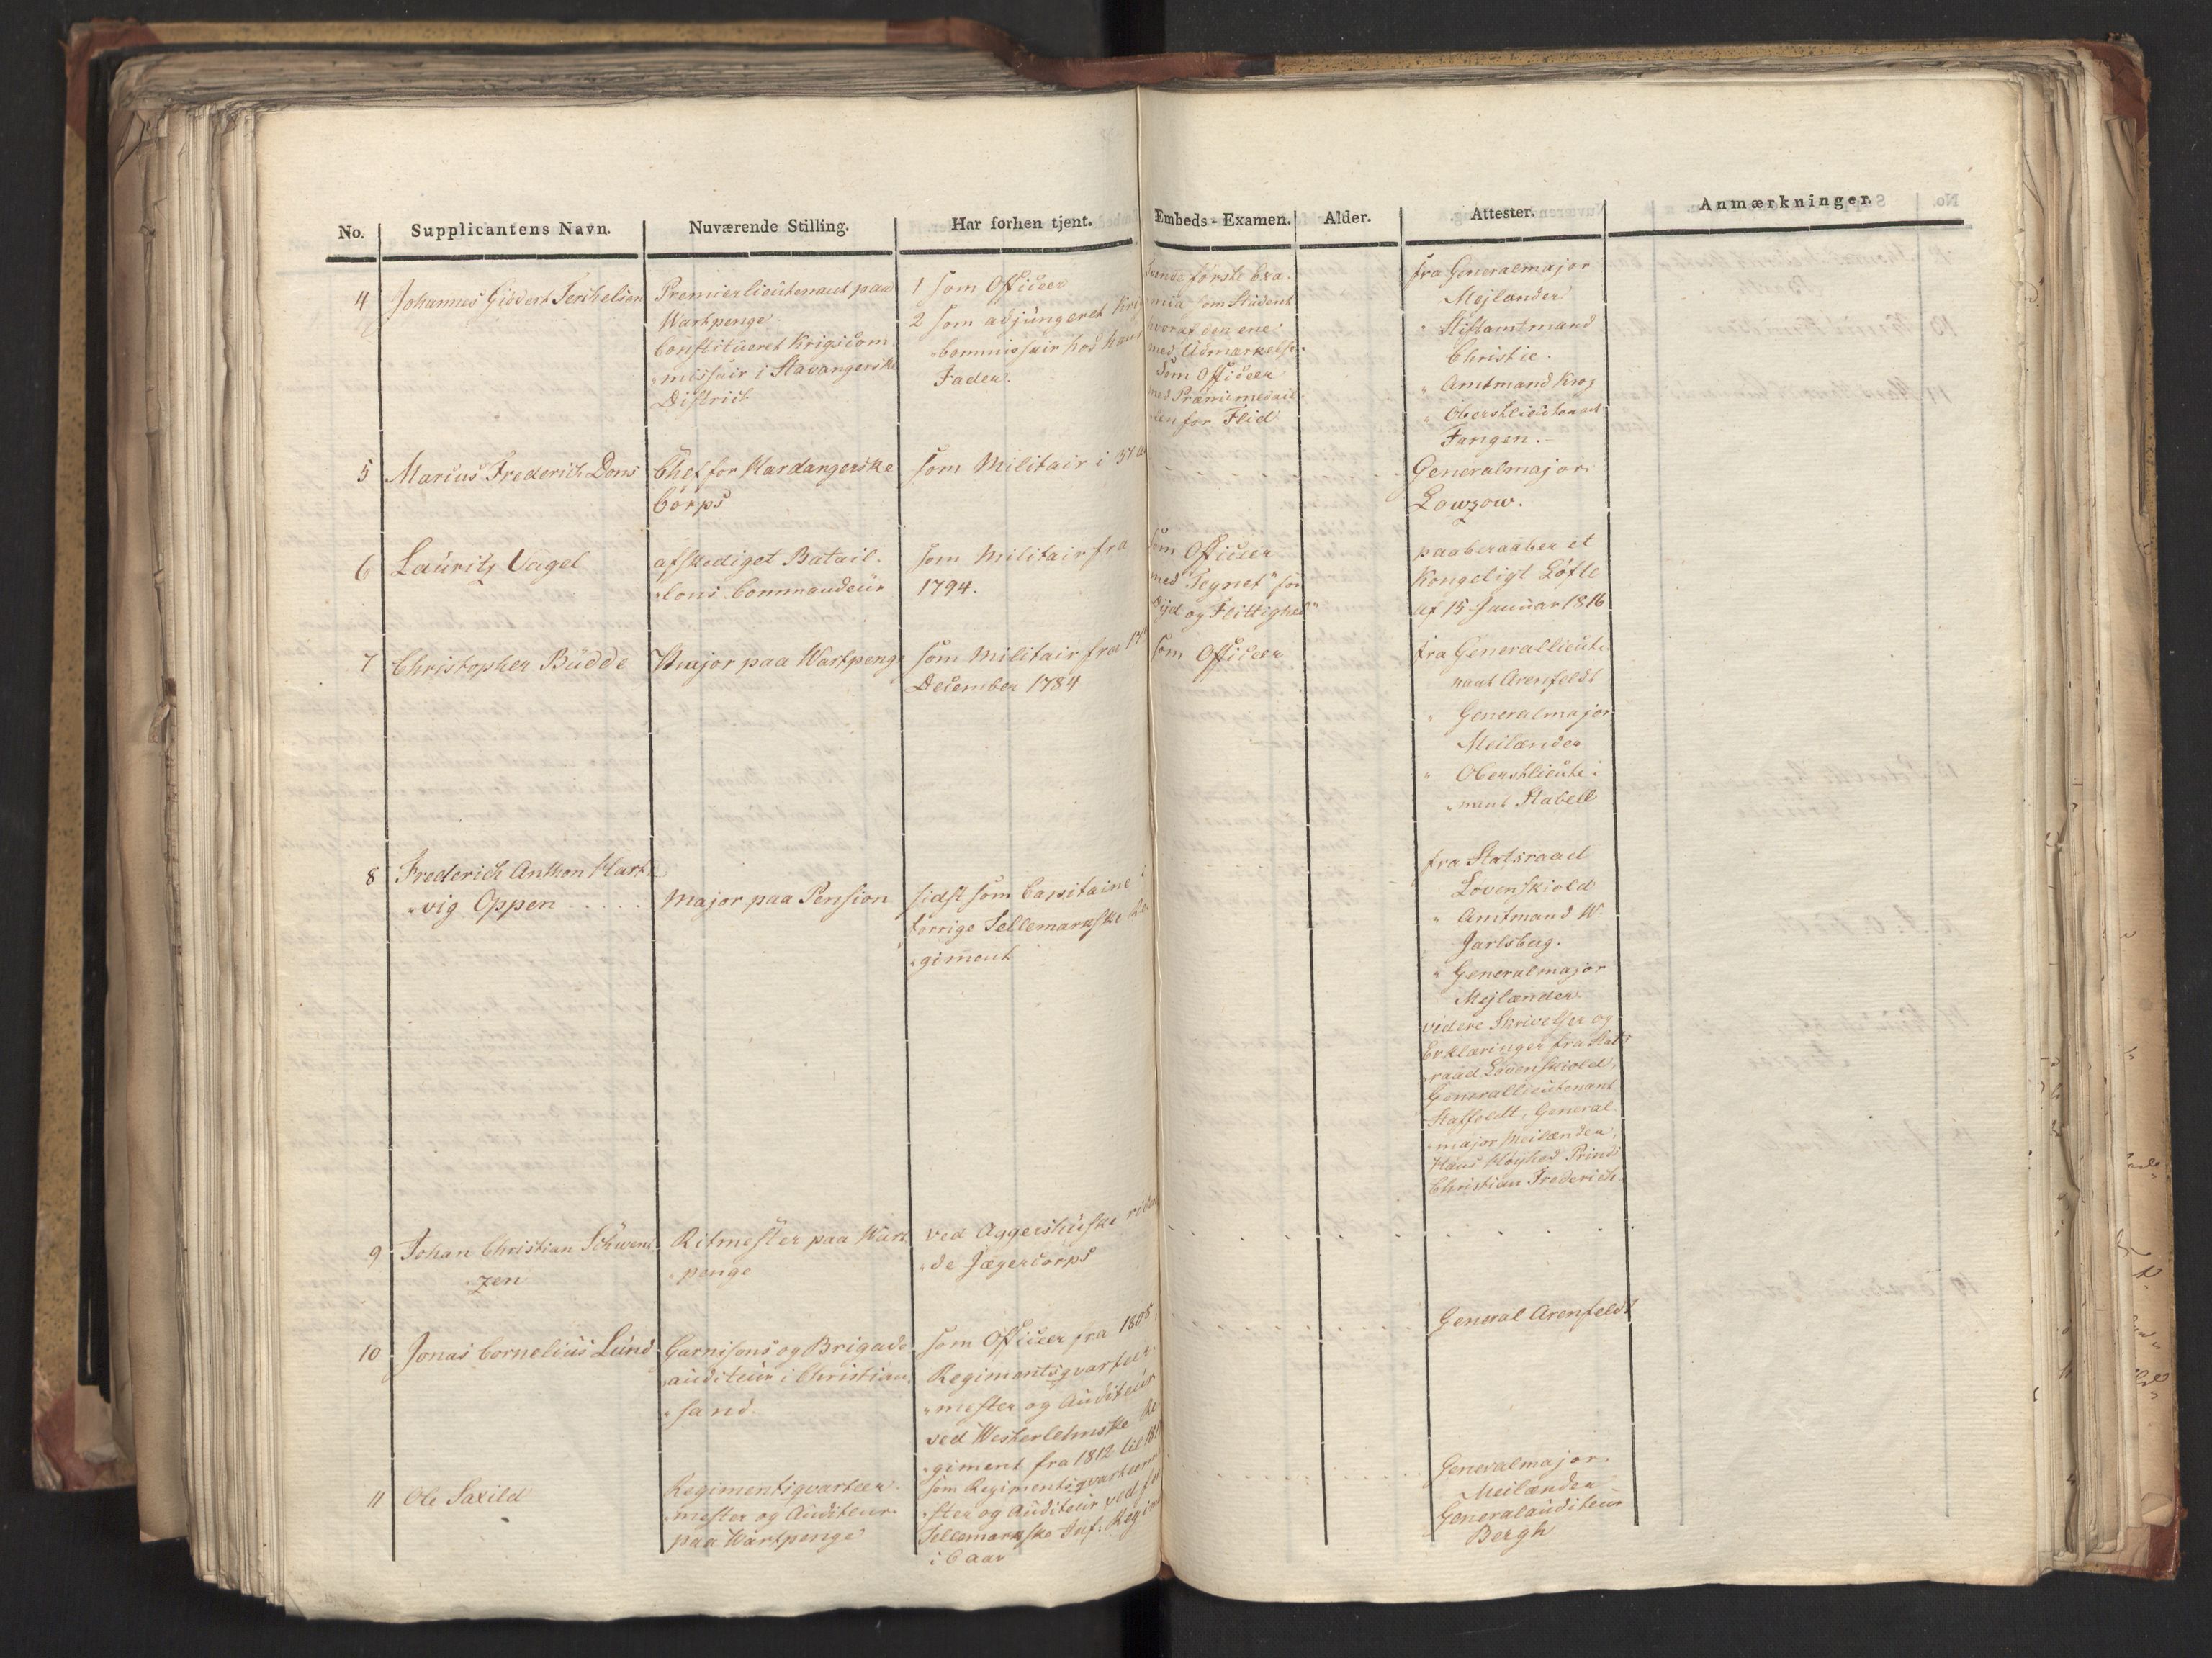 No. Supplicantens Navn. Nuværende Stilling. Har forhen tjent. Embeds-Examen. Alder. Attester. Anmærkninger.
4 Johannes Giödert Terchelsen
Premierlieutenant paa
Wartpenge.
Constitueret Krigscom-
missair i Stavangerske
District
1 som Officeer
2 som adjungeret
Commissair hos hans
Fader.
første Exa-
mina som Student
hvoraf den ene
med Udmærkelse.
Som Officeer
med Præmiemedail-
len for Flid
fra Generalmajor
Mejlænder
" Stiftamtmand
Christie.
" Amtmand Krog
" Oberstlieutenant
Fangen.
5 Marcus Frederich Dons
Chef for Hardangerske
Corps
som Militair i
Generalmajor
Lowzow.
6 Lauritz Vagel
afskediget Batail-
lons Commandeur
som Militair fra
1794.
som Officeer
med "Tegnet" for
Dyd og Flittighed"
paaberaaber et
Kongeligt Löfte
af 15 Januar 1816
7 Christopher Budde
Major paa Wartpenge
som Militair fra
December 1784
som Officeer
fra Generallieute-
nant Arenfeldt
" Generalmajor
Meilænder
" Oberstlieute-
nant Stabell
8 Frederich Anthon Hart-
vig Oppen . . . . .
Major paa Pension
sidst som Capitaine i
forrige Tellemarkske Re-
giment
fra Statsraad
Lovenskiold
" Amtmand W.
Jarlsberg.
" Generalmajor
Mejlænder.
videre Skrivelser og
Erklæringer fra Stats-
raad Lövenskiold,
Generallieutenant
Staffeldt, General-
major Meilænder,
Hans Höyhed Prinds
Christian Frederich.
9 Johan Christian Schwent-
zen
Ritmester paa Wart-
penge
ved Aggershuske riden-
de Jægercorps
10 Jonas Cornelius Lund
Garnisons og Brigade
auditeur i Christian-
sand.
som Officeer fra 1805,
Regimentsqvarteer-
mester og Auditeur
ved Westerlehnske Re-
giment fra 1812 til
General Arenfeldt
11 Ole Saxild
Regimentsqvarteer-
mester og Auditeur
paa Wartpenge
som Regimentsqvarteerme-
ster og Auditeur ved
Tellemarkske Inf: Regim
i 6 aar
Generalmajor
Meilænder
Generalauditeur
Bergh